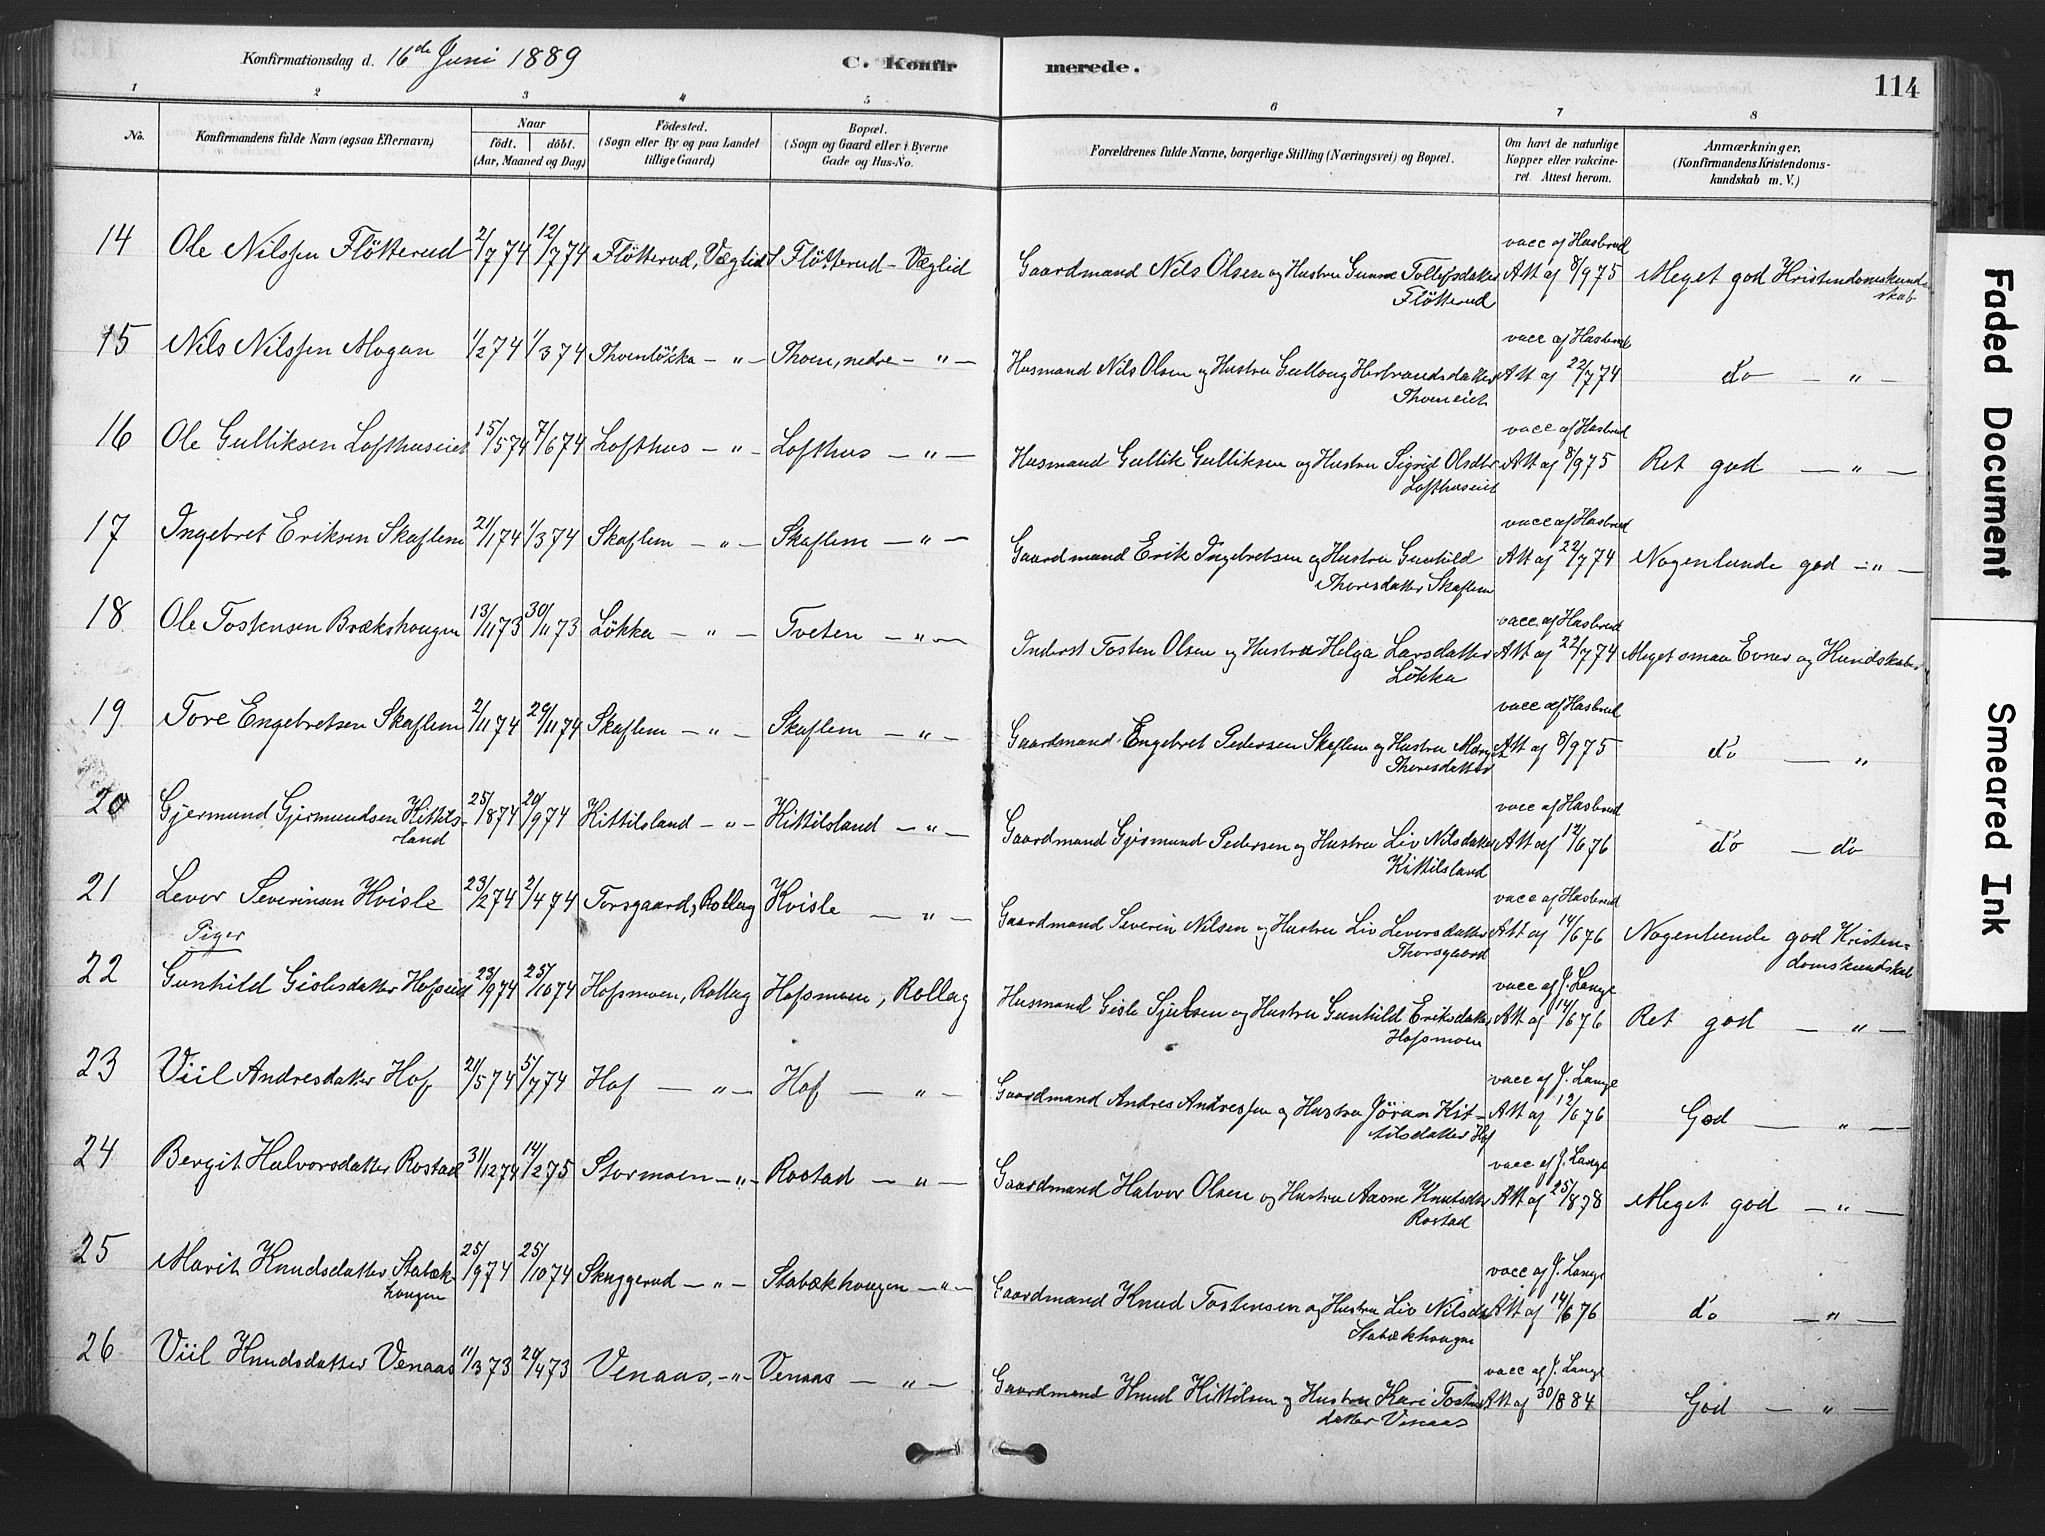 Konfirmationsdag d. 16de Juni 1889
C. Konfirmerede.
114
1 2 3 4 5 6 7 8
No. Konfirmandens fulde Navn (ogsaa Efternavn) Naar født. døbt. (Aar, Maaned og Dag) Fødested. (Sogn eller By og paa Landet tillige Gaard) Bopæl. (Sogn og Gaard eller i Byerne Gade og Hus-No. Forældrenes fulde Navne, borgerlige Stilling (Næringsvei) og Bopæl. Om havt de naturlige Kopper eller vakcineret. Attest herom. Anmærkninger. (Konfirmandens Kristendomskundskab m. V.)
14 Ole Nilssen Fløtterud 2/7 74 12/7 74 Fløtterud, Væglid Fløtterud - Væglid Gaardmand Nils Olsen og Hustru Gunne Tollefsdatter Fløtterud vacc af Hasbrud Att af 8/9 75 Meget god Kristendomskundskab
15 Nils Nilssen Mogan 1/2 74 1/3 74 Thoenløkka - " - Thoen, nedre - " - Husmand Nils Olsen og Hustru Gullaug Herbrandsdatter Thoeneiet vacc af Hasbrud Att af 22/7 74 do - " -
16 Ole Gulliksen Lofthuseiet 15/5 74 7/6 74 Lofthus - " - Lofthus - " - Husmand Gullik Gulliksen og Hustru Sigrid Olsdtr Lofthuseiet vacc af Hasbrud Att af 8/9 75 Ret god - " -
17 Ingebret Eriksen Skaflem 21/1 74 1/3 74 Skaflem - " - Skaflem - " - Gaardmand Erik Ingebretsen og Hustru Gunhild Thoresdatter Skaflem vacc af Hasbrud Att af 22/7 74 Nogenlunde god - " -
18 Ole Tostensen Brækshougen 13/11 73 30/11 73 Løkka - " - Tveten - " - Inderst Tosten Olsen og Hustru Helga Larsdatter Løkka vacc af Hasbrud Att af 22/7 74 Meget smaa Evner og Kundskaber
19 Tore Engebretsen Skaflem 2/11 74 29/11 74 Skaflem - " - Skaflem - " - Gaardmand Engebret Pedersen Skaflem og Hustru Marge Thoresdatter vacc af Hasbrud Att af 8/9 75 do - "
20 Gjermund Gjermundsen Kittilsland 25/8 74 20/9 74 Kittilsland - " - Kittilsland - " - Gaardmand Gjermund Pedersen og Hustru Liv Nilsdatter Kittilsland vacc af Hasbrud Att af 12/6 76 do - do
21 Levor Severinsen Kvisle 23/2 74 2/4 74 Torsgaard, Rollag Kvisle - " - Gaardmand Severin Nilsen og Hustru Liv Leversdatter Thorsgaard vacc af Hasbrud Att af 14/6 76 Nogenlunde god Kristendomskundskab
Piger
22 Gunhild Gislesdatter Hofseiet 23/9 74 25/10 74 Hofsmoen, Rollag Hofsmoen, Rollag Husmand Gisle Sjulsen og Hustru Gunhild Eriksdatter Hofsmoen vacc af J. Lange Att af 14/6 76 Ret god - " -
23 Viil Andresdatter Hof 21/5 74 5/7 74 Hof - " - Hof - " - Gaardmand Andres Andressen og Hustru Jøran Kittilsdatter Hof vacc af J. Lange Att af 12/6 76 God - " -
24 Bergit Halvorsdatter Rostad 31/12 74 14/2 75 Stormoen - " - Rostad - " - Gaardmand Halvor Olsen og Hustru Aasne Knutsdtr Rostad vacc af J. Lange Att af 25/8 78 Meget god - " -
25 Marit Knudsdatter Stabækhougen 25/9 74 25/10 74 Skuggerud - " - Stabækhougen - " - Gaardmand Knud Tostensen og Hustru Liv Nilsdtr Stabækhougen vacc af J. Lange Att af 14/6 76 do - " -
26 Viil Knudsdatter Venaas 11/3 73 20/4 73 Venaas, - " - Venaas - " - Gaardmand Knud Kittilsen og Hustru Kari Tostensdatter Venaas vacc af J. Lange Att af 30/8 84 God - " -
Faded Document
Smeared Ink